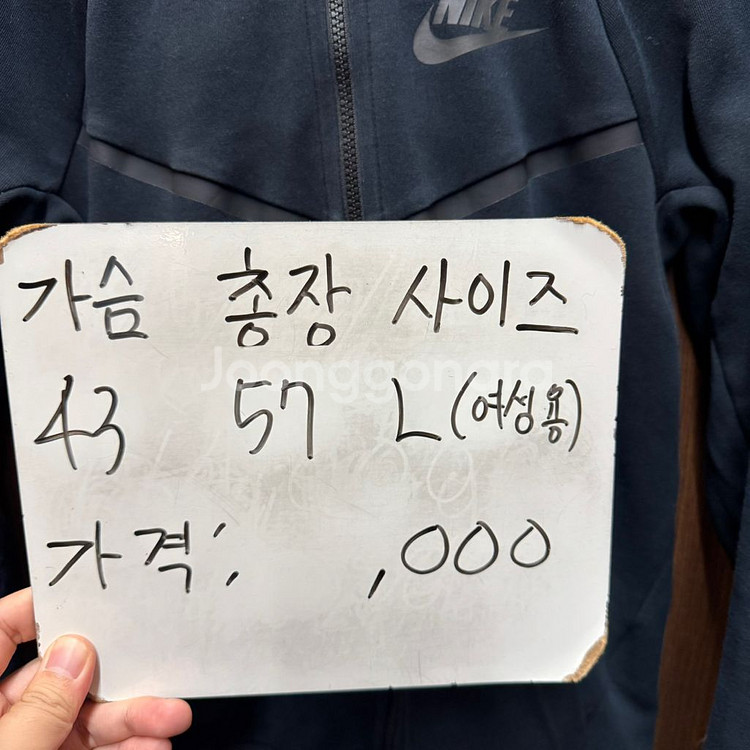 NIKE
가슴 총장 사이즈
Joonggongra
43 57 L (여성용)
가격: ,000